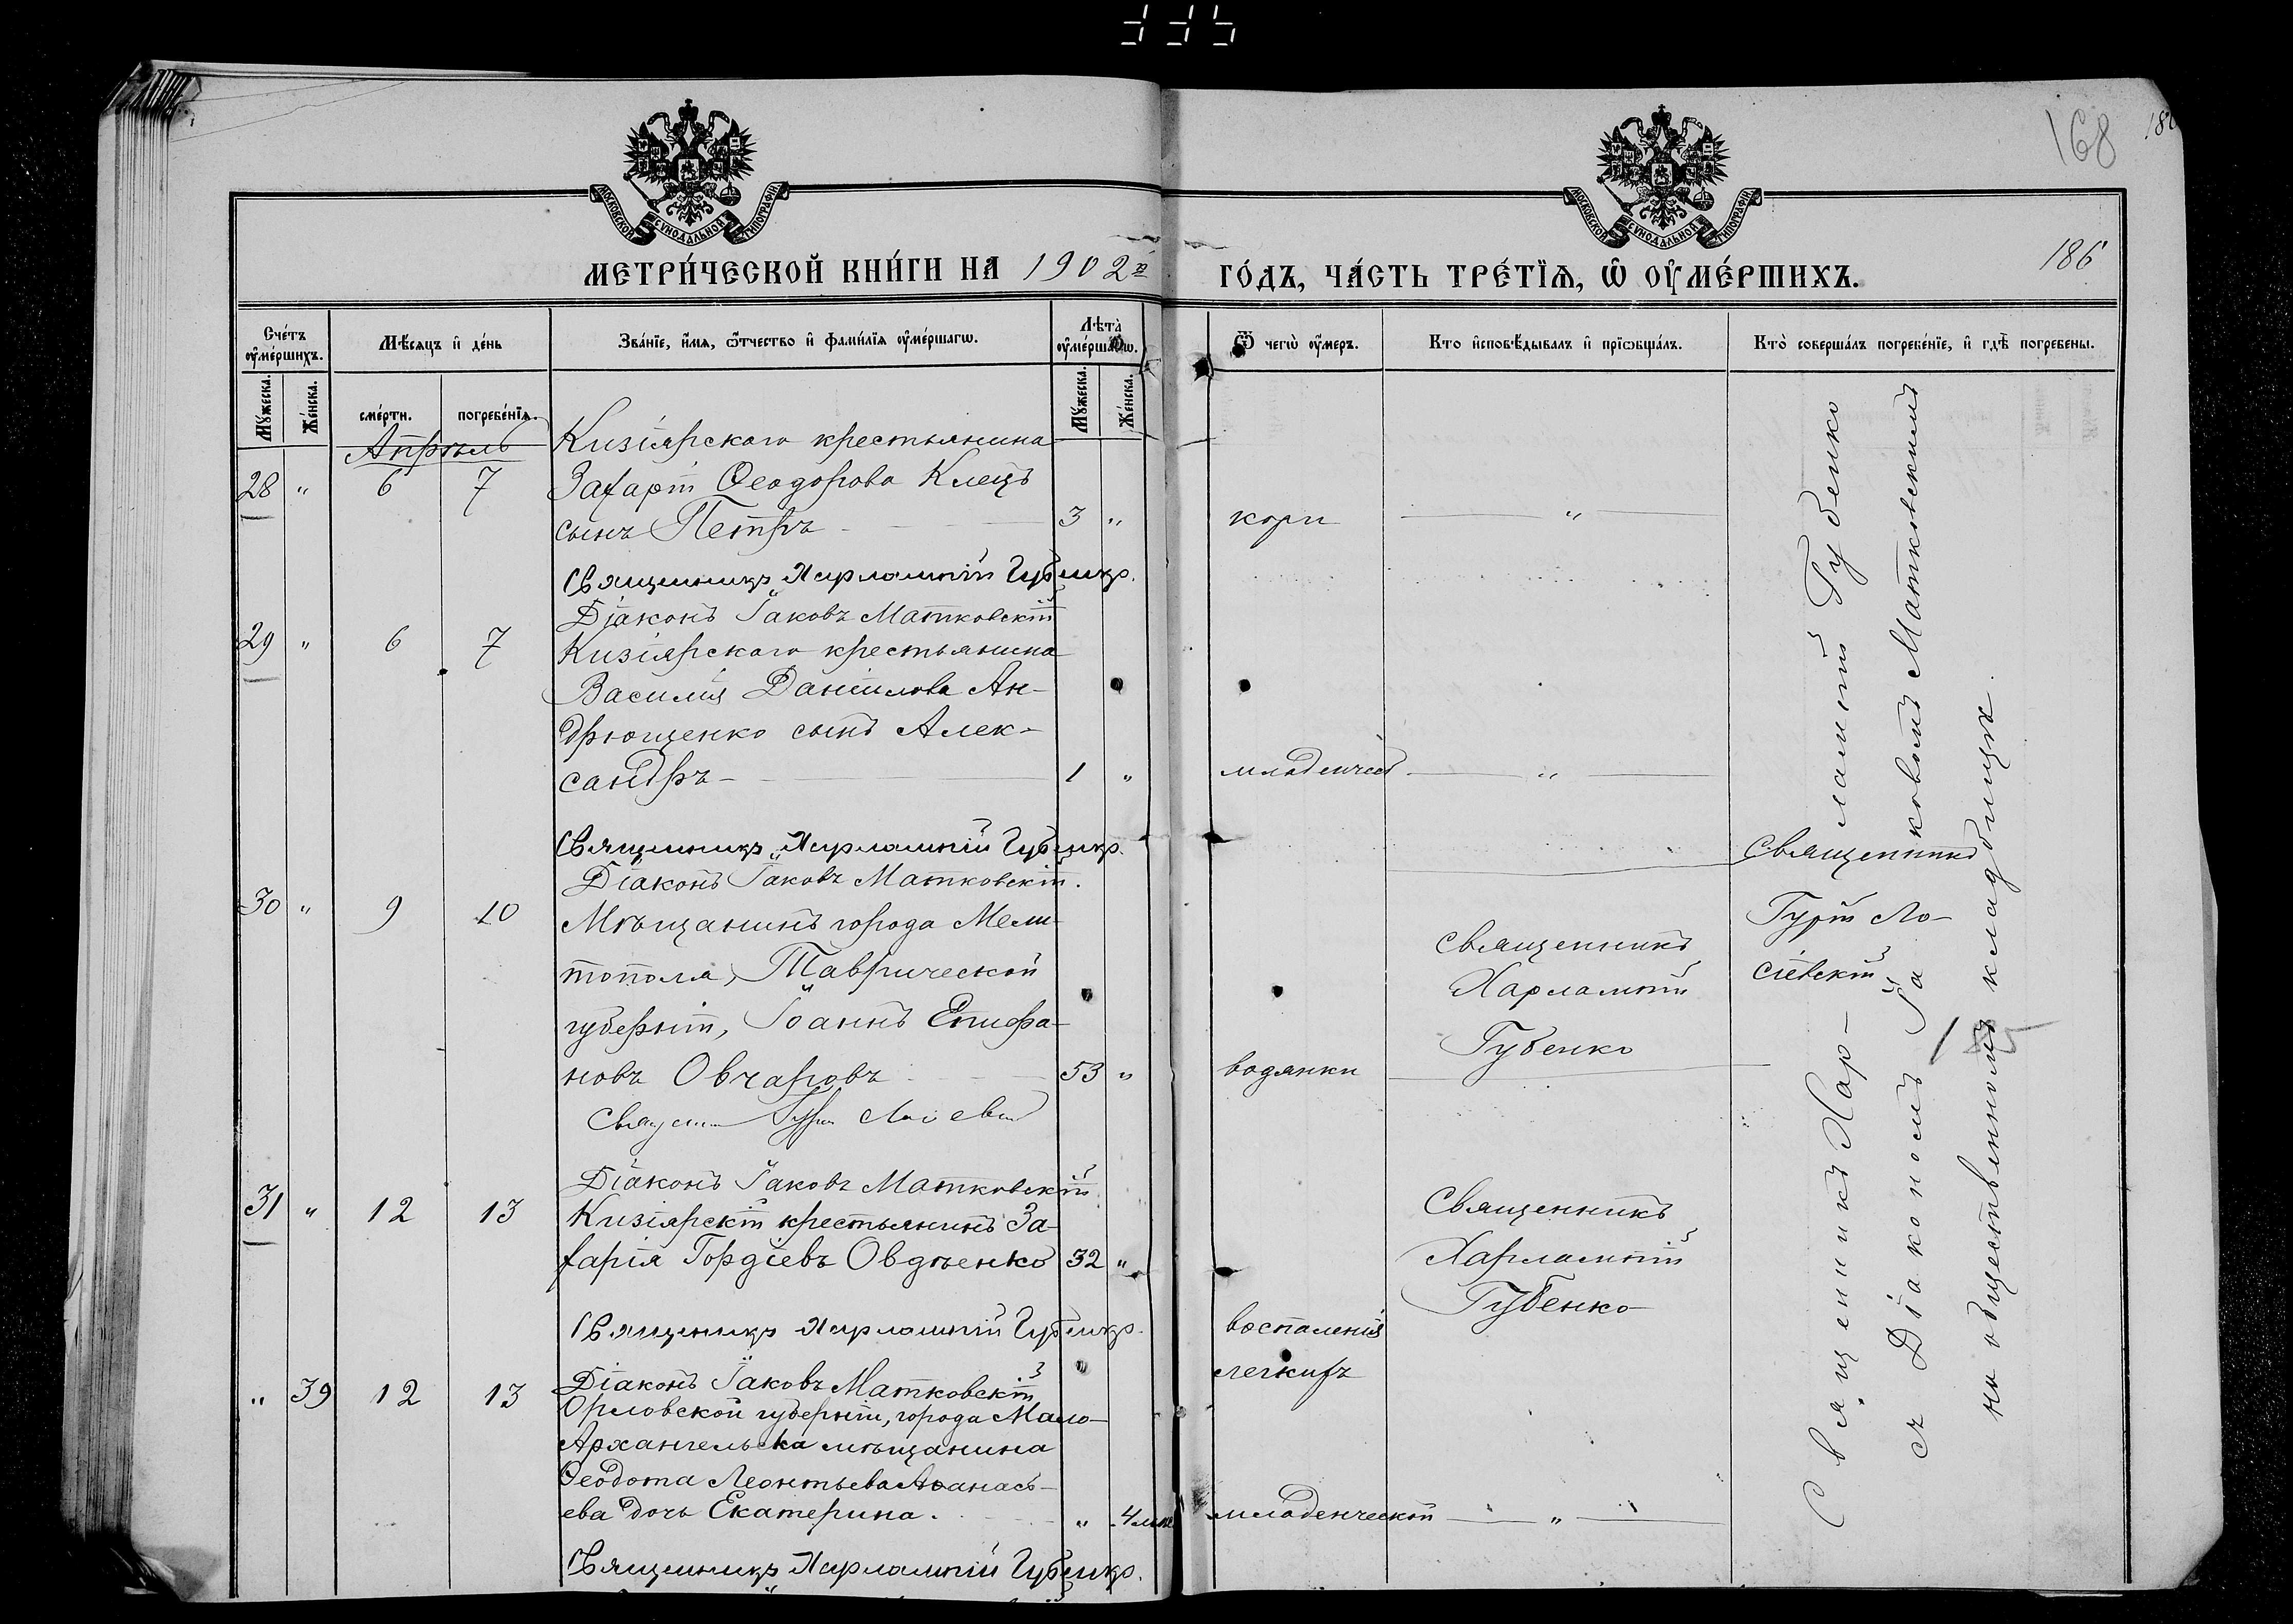 335
168
МОСКОВСКОЙ СѴНОДАЛЬНОЙ ТИПОГРАФІИ
МОСКОВСКОЙ СѴНОДАЛЬНОЙ ТИПОГРАФІИ
186
МЕТРИ́ЧЕСКОЙ КНИ́ГИ НА 1902й ГО́ДЪ, ЧА́СТЬ ТРЕ́ТЇѦ, Ѡ҆ ОУ҆МЕ́РШИХЪ.
Сче́тъ оу҆ме́ршихъ.
Мꙋ́жеска.
Же́нска.
Мѣ́сѧцъ и҆ де́нь
сме́рти.
погребе́нїѧ.
Зва́нїе, и҆́мѧ, ѻ҆́тчество и҆ фами́лїѧ оу҆ме́ршагѡ.
Лѣ́та оу҆ме́ршагѡ.
Мꙋ́жеска.
Же́нска.
Ѿ чегѡ̀ оу҆́меръ.
Кто̀ и҆сповѣ́дывалъ и҆ прїѡбща́лъ.
Кто̀ соверша́лъ погребе́нїе, и҆ гдѣ̀ погребены.
Апрѣль
28 " 6 7
Кизіярскаго крестьянина
Захарія Ѳеодорова Клецъ
сынъ Петръ 3 "
кори "
Священникъ Харлампій Губенко.
Діаконъ Іаковъ Матковскій
29 " 6 7
Кизіярскаго крестьянина
Василія Даніилова Ан-
дрющенко сынъ Алек-
сандръ 1 "
младенческ. "
Священникъ Харлампій Губенко.
Діаконъ Іаковъ Матковскій.
30 " 9 10
Мѣщанинъ города Мели-
тополя, Таврической
губерніи, Іоаннъ Епифа-
новъ Овчаровъ 53 "
водянки
Священникъ
Харлампій
Губенко
Священникъ
Гурій Ло-
сіевскій
Діаконъ Іаковъ Матковскій
31 " 12 13
Кизіярскій крестьянинъ За-
харія Гордіевъ Овдѣенко 32 "
воспаленія
легкихъ
Священникъ
Харлампій
Губенко
Священникъ Харлампій Губенко.
Діаконъ Іаковъ Матковскій
" 39 12 13
Орловской губерніи, города Мало-
Архангельска мѣщанина
Ѳеодота Леонтьева Аѳанась-
ева дочь Екатерина. " 4 мѣс
младенческой "
Священникъ Харлампій Губенко.
Священникъ Хар-лампій Губенко
съ Діакономъ Іаковомъ Матковскимъ
на общественномъ кладбищѣ.